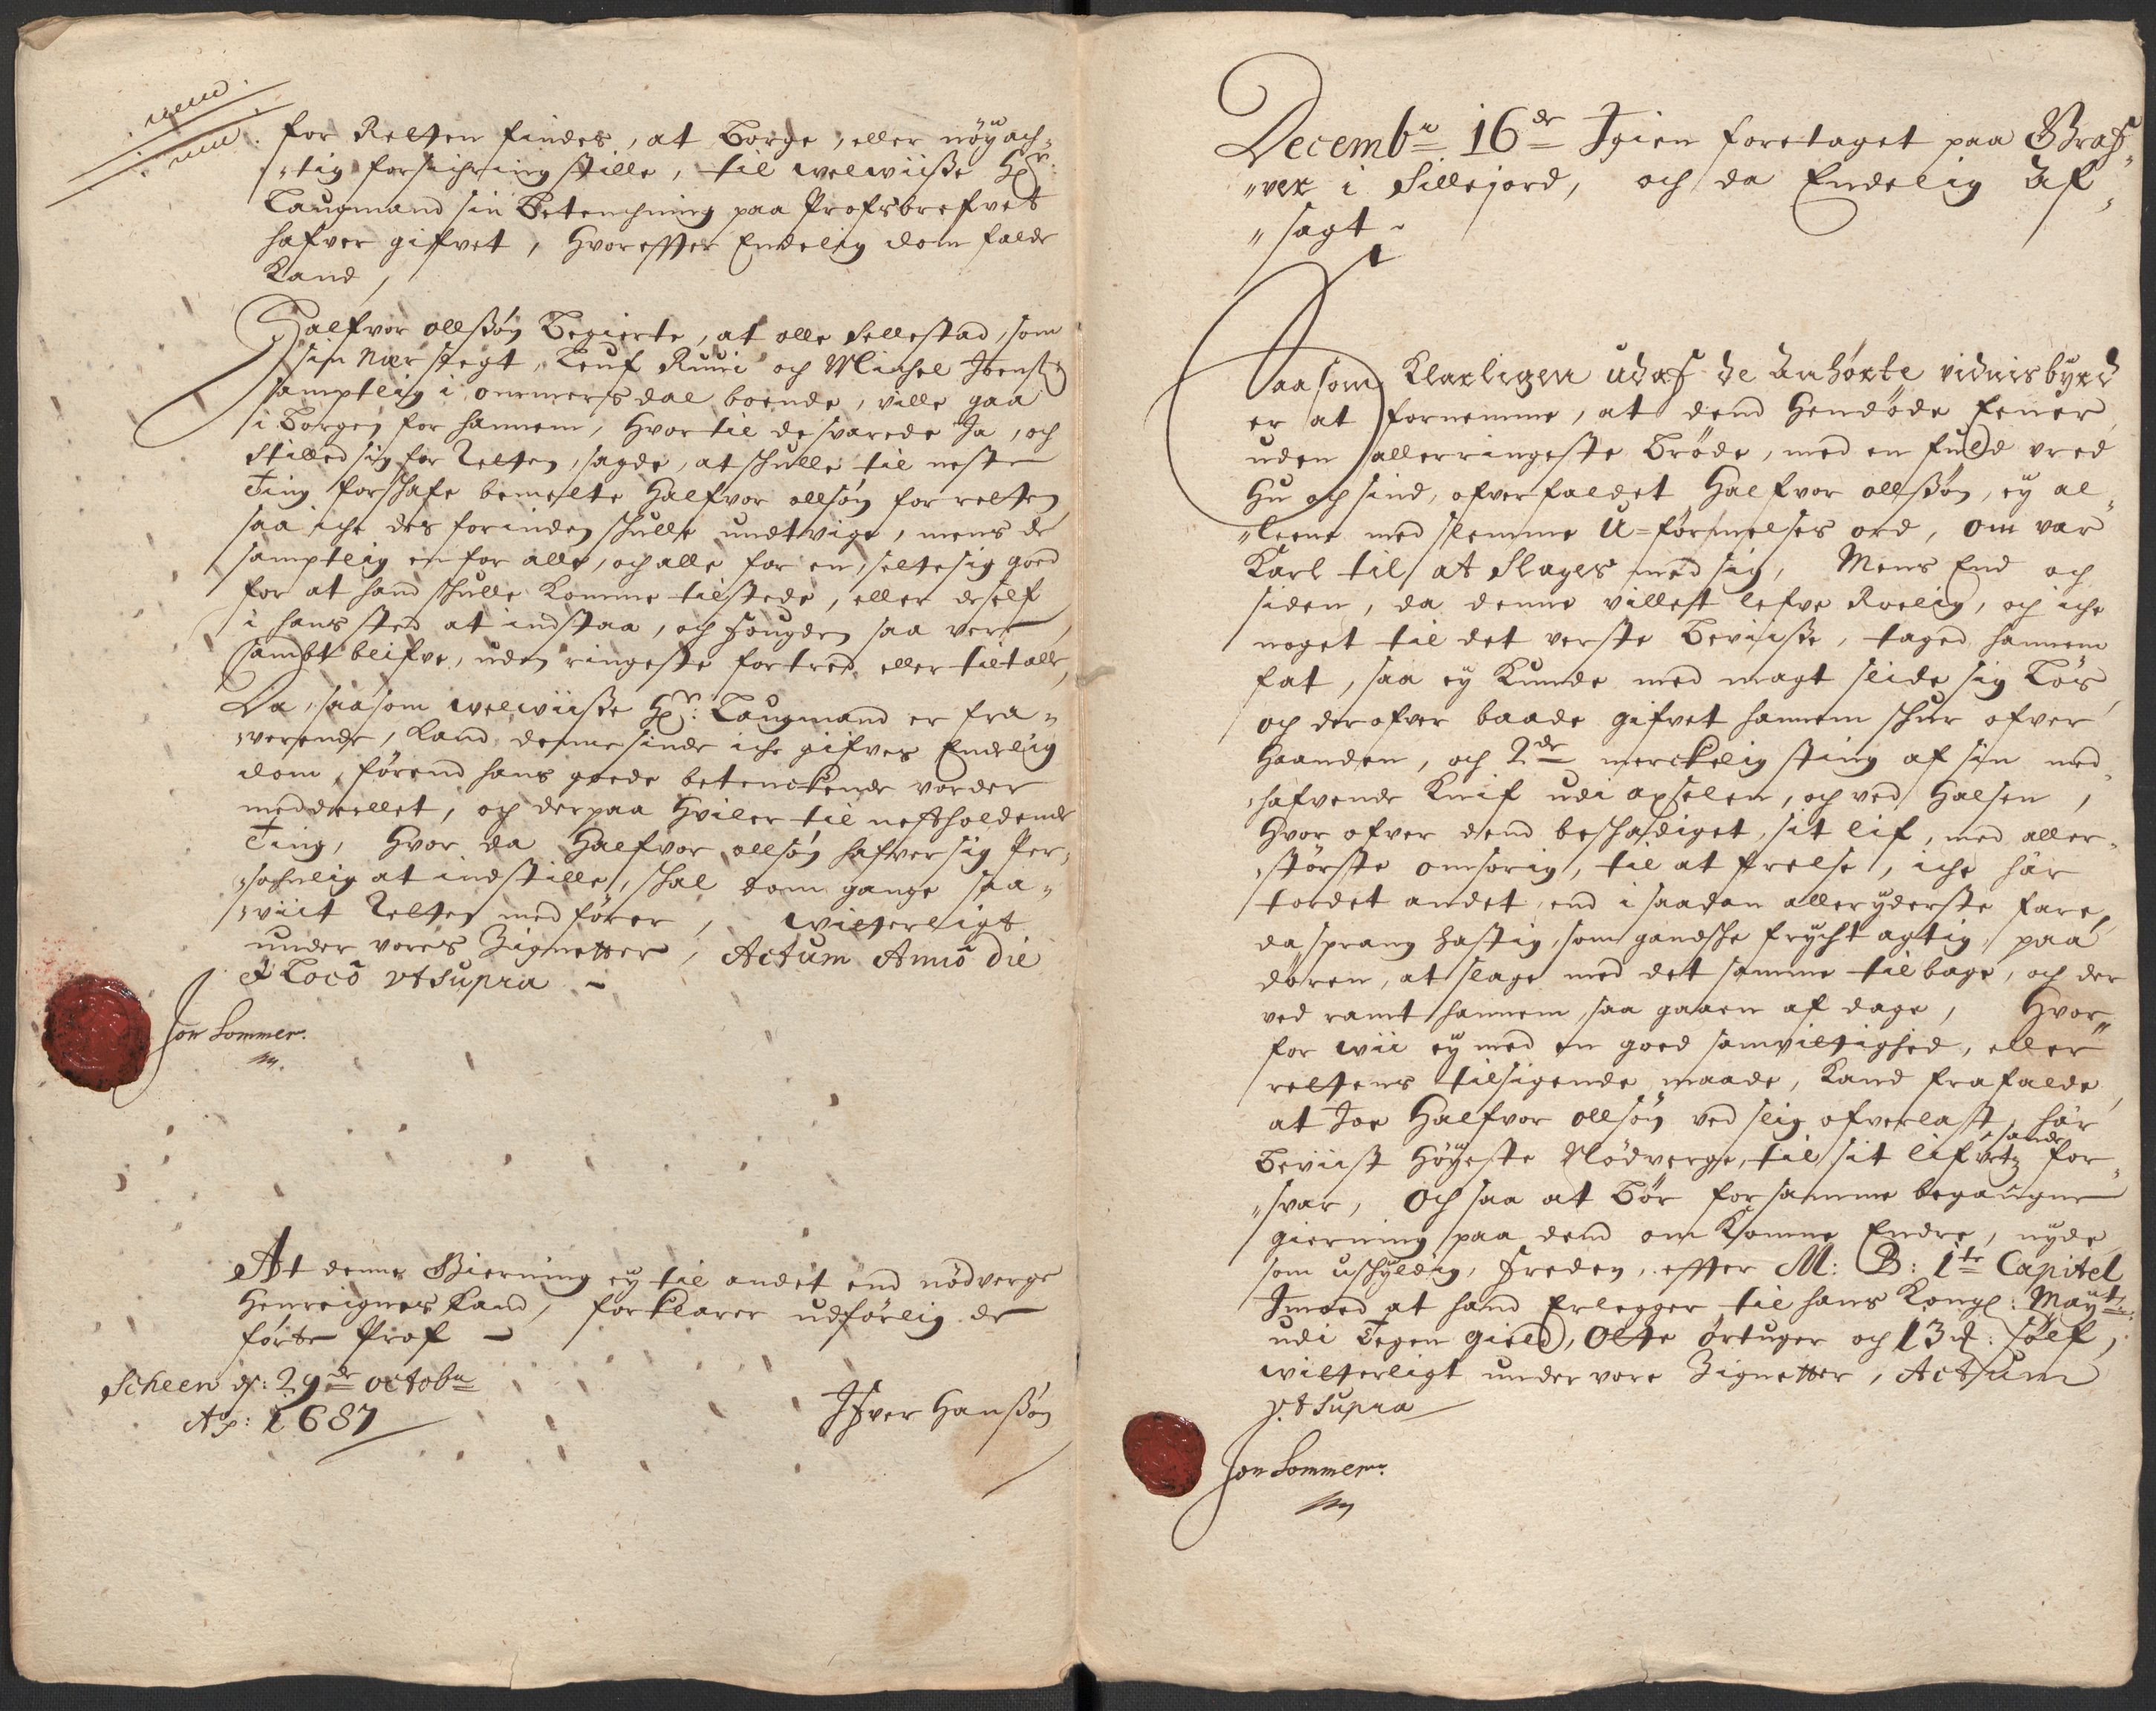 for Retten findes, at Borge, eller nöyach-
tig forsichring stille, til welwiisse Hr:
Laugmand sin Betenchning paa Profsbrefvet
hafver gifvet, Hvoreffter Endelig dom falde
Kand,
Halfvor ollssön Begierte, at olle Sellestad, som
sin Nær slegt, Leuf och Michel Joenss:
samptlig i onnmersdal boende, ville gaa
i Borgen for hannem, Hvortil de svarede Ja, och
stilled sig for Retten, sagde, at schulle til neste
Ting forschafe bemelte Halfvor ollsön for retten,
saa iche des forinden schulle undtvige, mens de
samptlig en for alle, och alle for en, seltesig goed
for at hand schulle komme tilstede, eller deself
i hans sted at indstaa, och fougden saa vere
sambt blifve, uden ringeste fortred eller tiltalle,
Da, saasom welwiisse Hr: Laugmand er fra-
verende, kand dennesinde iche gifves Endelig
dom, förend hans goede betenckende vorder
meddeellet, och derpaa Hviler til nestholdende
Ting, Hvor da Halfvor ollsön hafver sig Per-
sohnlig at indstille, schal dom gange saa-
viit Retten medförer, witterligt
under vores Zignetter, Actum Anno Die
et Loco vt Supra
Jon Sommer.
At denne Gierning ey til andet end nödverge
Henreignes kand, forklarer udförlig de
förte Prof
Scheen d: 29de octobr
Ao: 1687
Ifver Hanssön
Decembr 16de Igien foretaget paa Graf-
ver i Sillejord, och da Endelig Af-
sagt
Saasom Klarligen udaf de Anhörte vidnisbyrd
er at fornemme, at dend Hendöde Ener
uden allerringeste Bröde, med en fuld vred
Hu och sind, ofverfaldet Halfvor ollssön, ey al-
leene med slemme U-förmelses ord, om var
Karl til at slages med sig, Mens End och
siden, da denne villest lefve Roelig, och iche
noget til det verste Beviisse, taged hannem
fat, saa ey kunde med magt slide sig Lös
och derofver baade gifvet hannem schur ofver
Haanden, och 2de merckelig sting af sin med-
hafvende Knif udi axselen, och ved Halsen,
Hvor ofver dend beschadiget, sit lif, med aller-
störste omsorig, til at frelse, iche hår
tordet andet, end i saadan alleryderste fare,
da sprang hastig, som gandsche frycht agtig paa
dören, at slage med det samme tilbage, och der
ved ramt hannem, saa gaaen af dage, Hvor-
for wii ey med en goed samvittighed, eller
rettens tilsigende maade, kand frafalde
at Joe Halfvor ollsön ved slig ofverlast hår
Beviist Höyeste Nödverge, til sit lifs for-
svar, Och saa at Bör for samme begangne
gierning paa dend omkomne Endre, nyde
som uschyldig, freden, effter M: B: 1te Capitel
Imoed at hand Erlegger til hans Kongl: Mayts:
udi Tegen gield, Otte örtuger och 13 d: sölf,
witterligt under vore Zignetter, Actum
vt Supra
Jon Sommer.